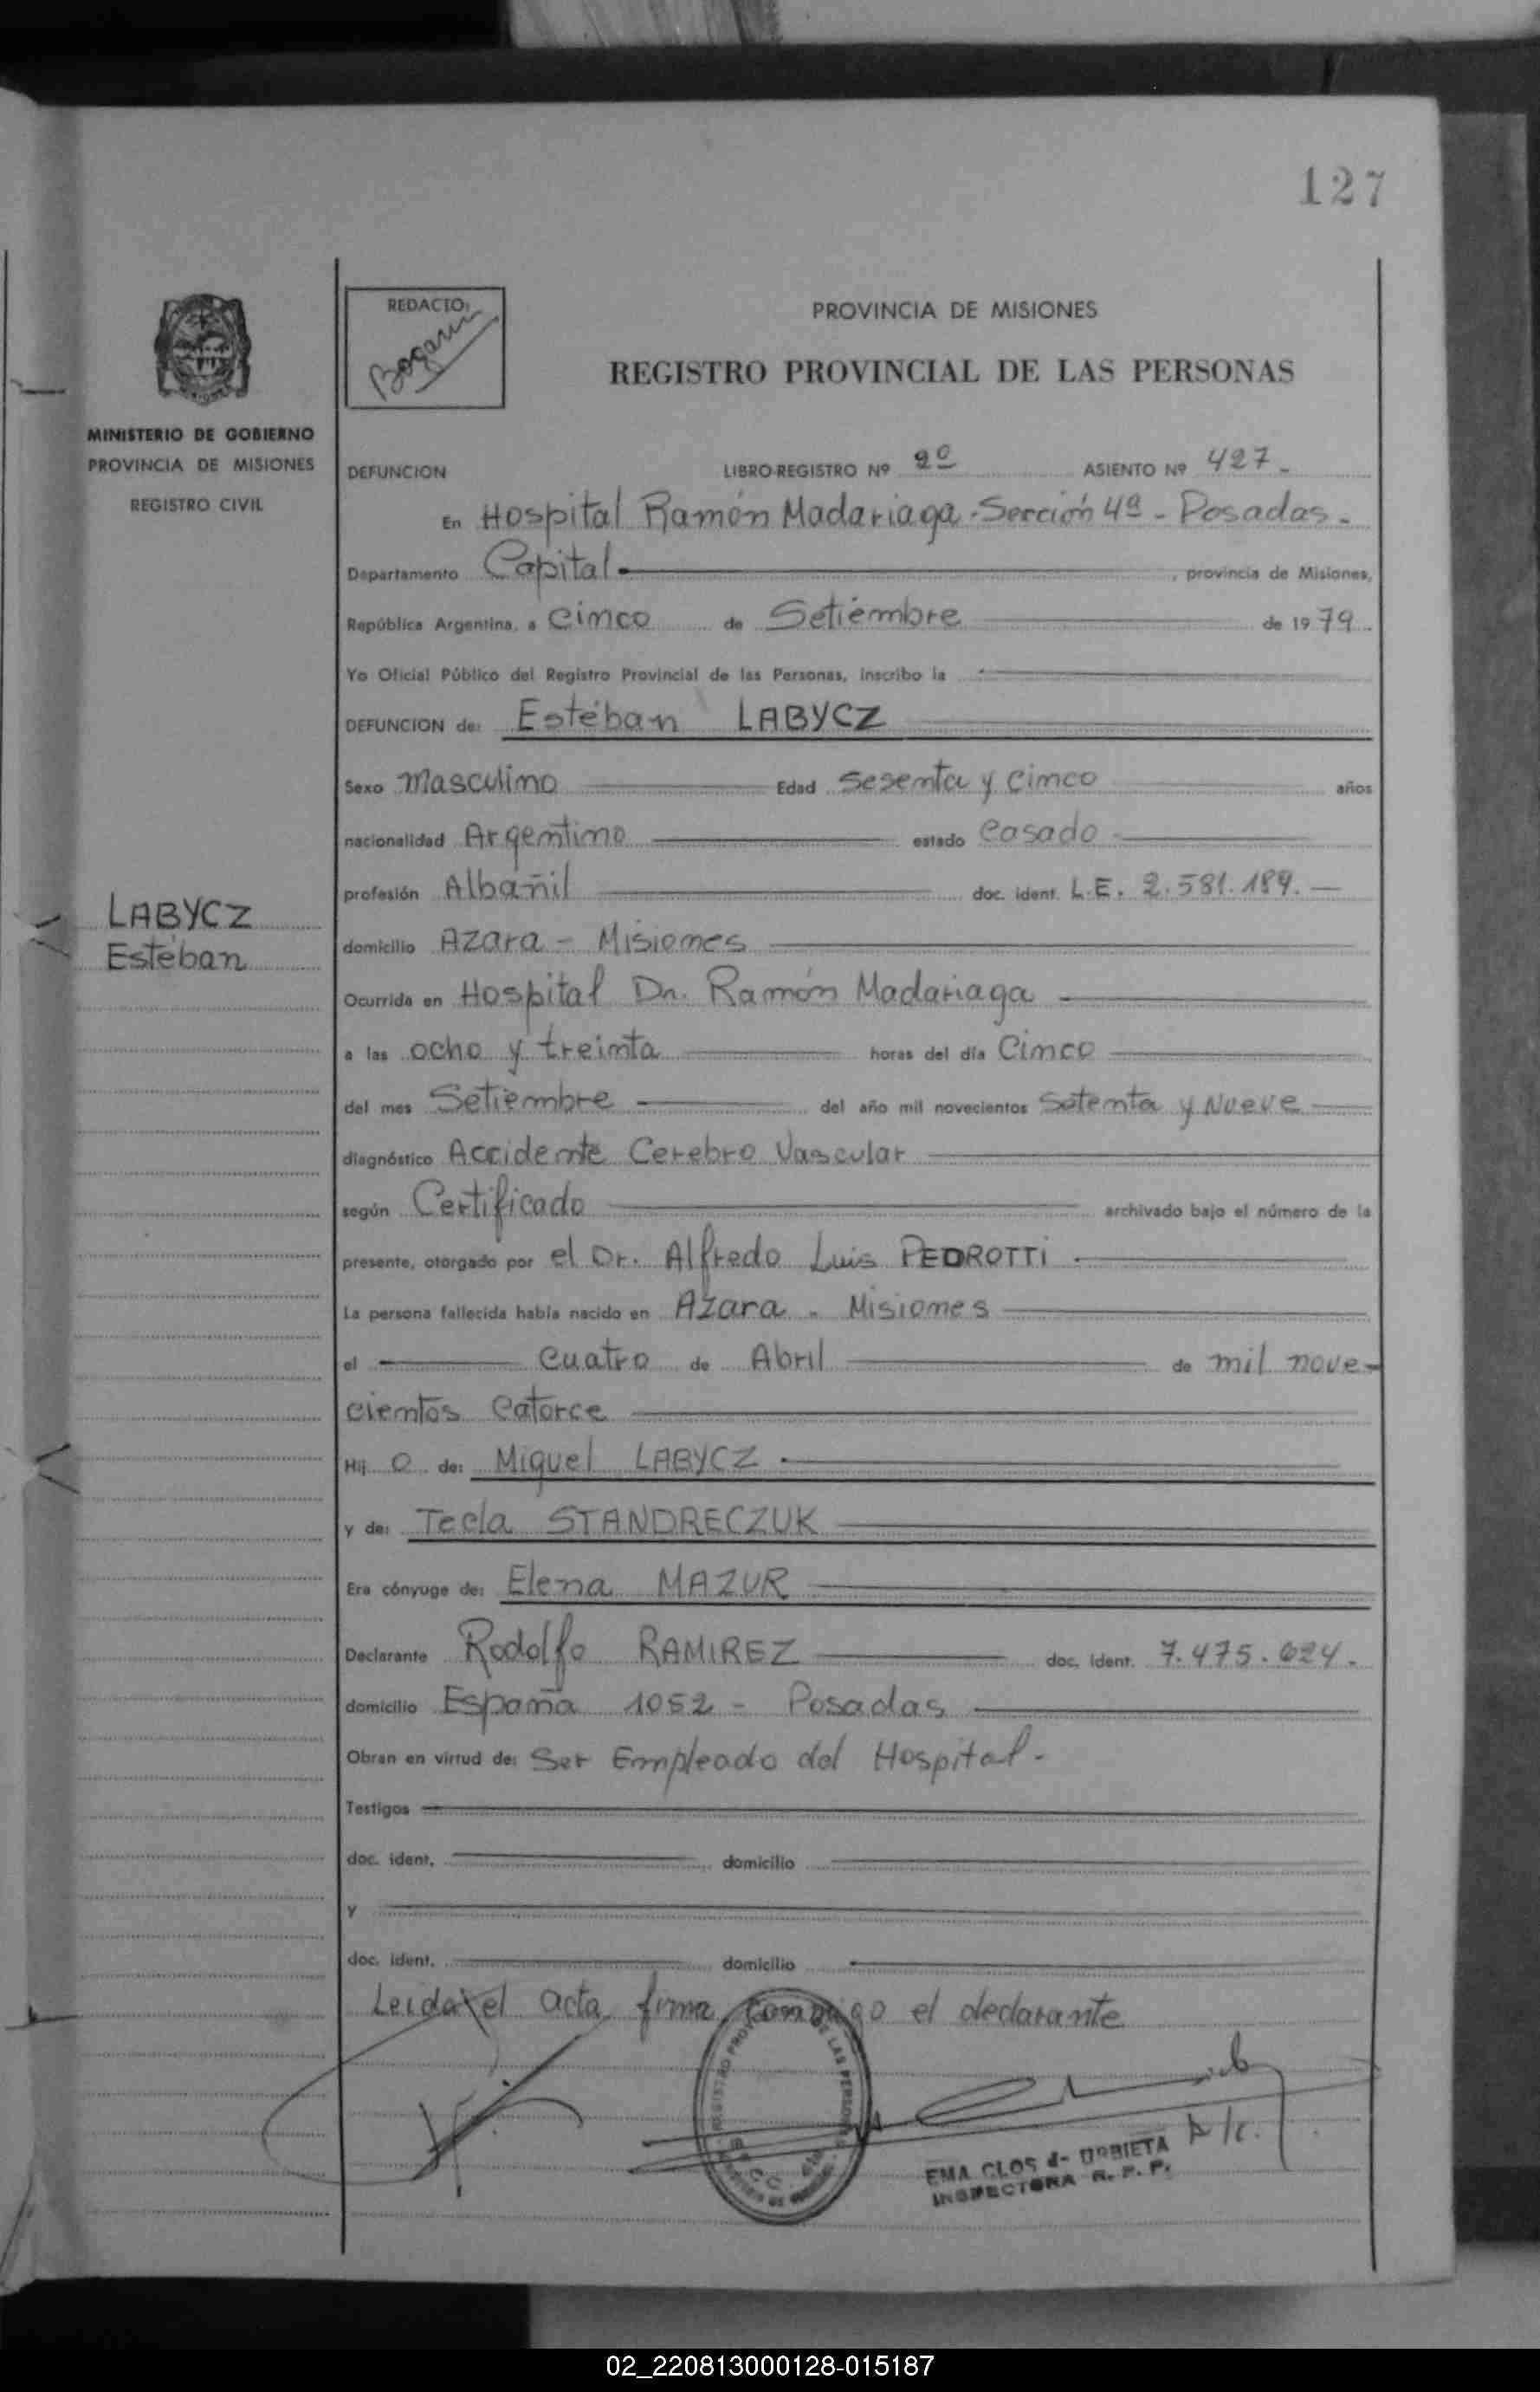 127
REDACTO:
Bogarin
PROVINCIA DE MISIONES
REGISTRO PROVINCIAL DE LAS PERSONAS
MINISTERIO DE GOBIERNO
PROVINCIA DE MISIONES
REGISTRO CIVIL
DEFUNCION LIBRO-REGISTRO Nº 2º ASIENTO Nº 427.-
En Hospital Ramón Madariaga - Sección 4ª - Posadas.-
Departamento Capital.- , provincia de Misiones,
República Argentina, a Cinco de Setiembre de 1979.
Yo Oficial Público del Registro Provincial de las Personas, inscribo la
DEFUNCION de: Estéban LABYCZ
Sexo Masculino Edad Sesenta y Cinco años
nacionalidad Argentino estado Casado
profesión Albañil doc. ident. L.E. 2.581.189.-
LABYCZ
Estéban
domicilio Azara - Misiones
Ocurrida en Hospital Dr. Ramón Madariaga
a las ocho y treinta horas del día Cinco
del mes Setiembre del año mil novecientos Setenta y Nueve
diagnóstico Accidente Cerebro Vascular
según Certificado archivado bajo el número de la
presente, otorgado por el Dr. Alfredo Luis PEDROTTI
La persona fallecida había nacido en Azara - Misiones
el Cuatro de Abril de mil nove-
cientos Catorce
Hij o de: Miguel LABYCZ
y de: Tecla STANDRECZUK
Era cónyuge de: Elena MAZUR
Declarante Rodolfo RAMIREZ doc. ident. 7.475.624.
domicilio España 1052 - Posadas
Obran en virtud de: Ser Empleado del Hospital.-
Testigos
doc. ident. domicilio
y
doc. ident. domicilio
Leida el acta firma conmigo el declarante
REGISTRO DE LAS PERSONAS
A/c.
EMA CLOS d- URBIETA
INSPECTORA R. P. P.
02_220813000128-015187